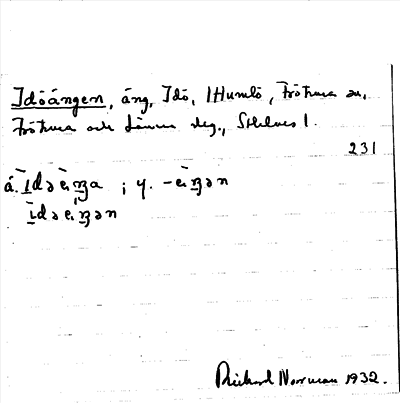 Idöängen, äng, Idö, 1 Humlö, Frötuna sn,
Frötuna och Länna skg., Sthlms l.
231
ä. ī̀dəèŋa ; y. -èŋən
ī̀dəèŋən
Rickard Norrman 1932.